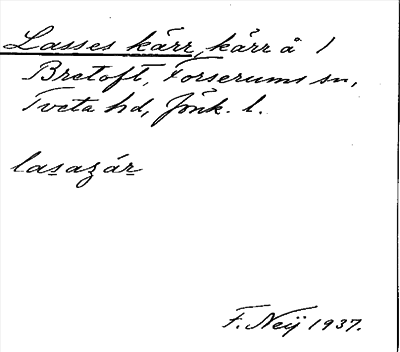 Lasses kärr, kärr å 1
Bretoft, Forserums sn,
Tveta hd, Jönk. l.
lasazár
F. Neij 1937.